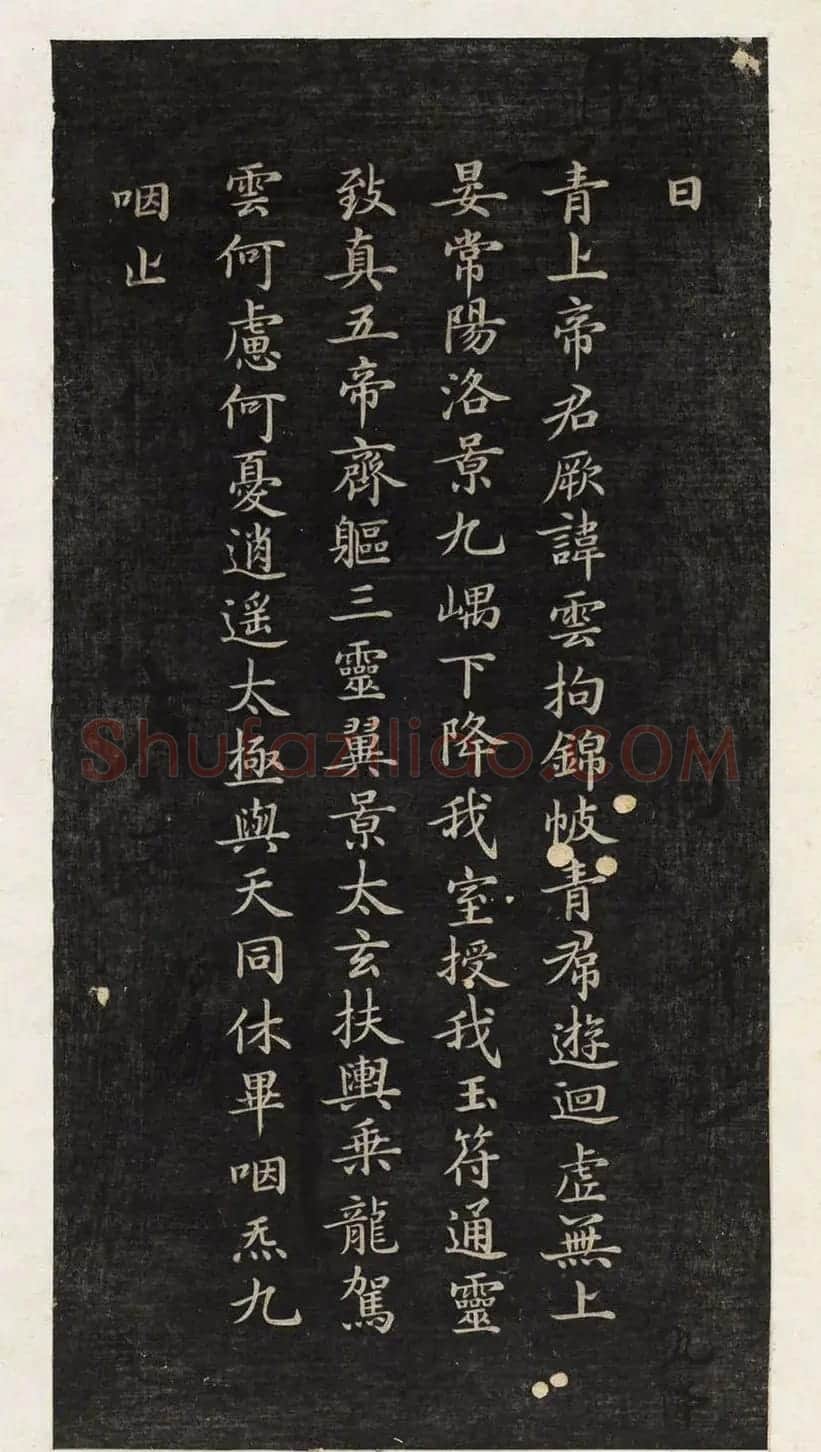 曰
青上帝君厥諱雲拘錦帔青帬遊迴虛無上
晏常陽洛景九嵎下降我室授我玉符通靈
致真五帝齊軀三靈翼景太玄扶輿乘龍駕
雲何慮何憂逍遙太極與天同休畢咽炁九
咽止
Shufaziliao.COM